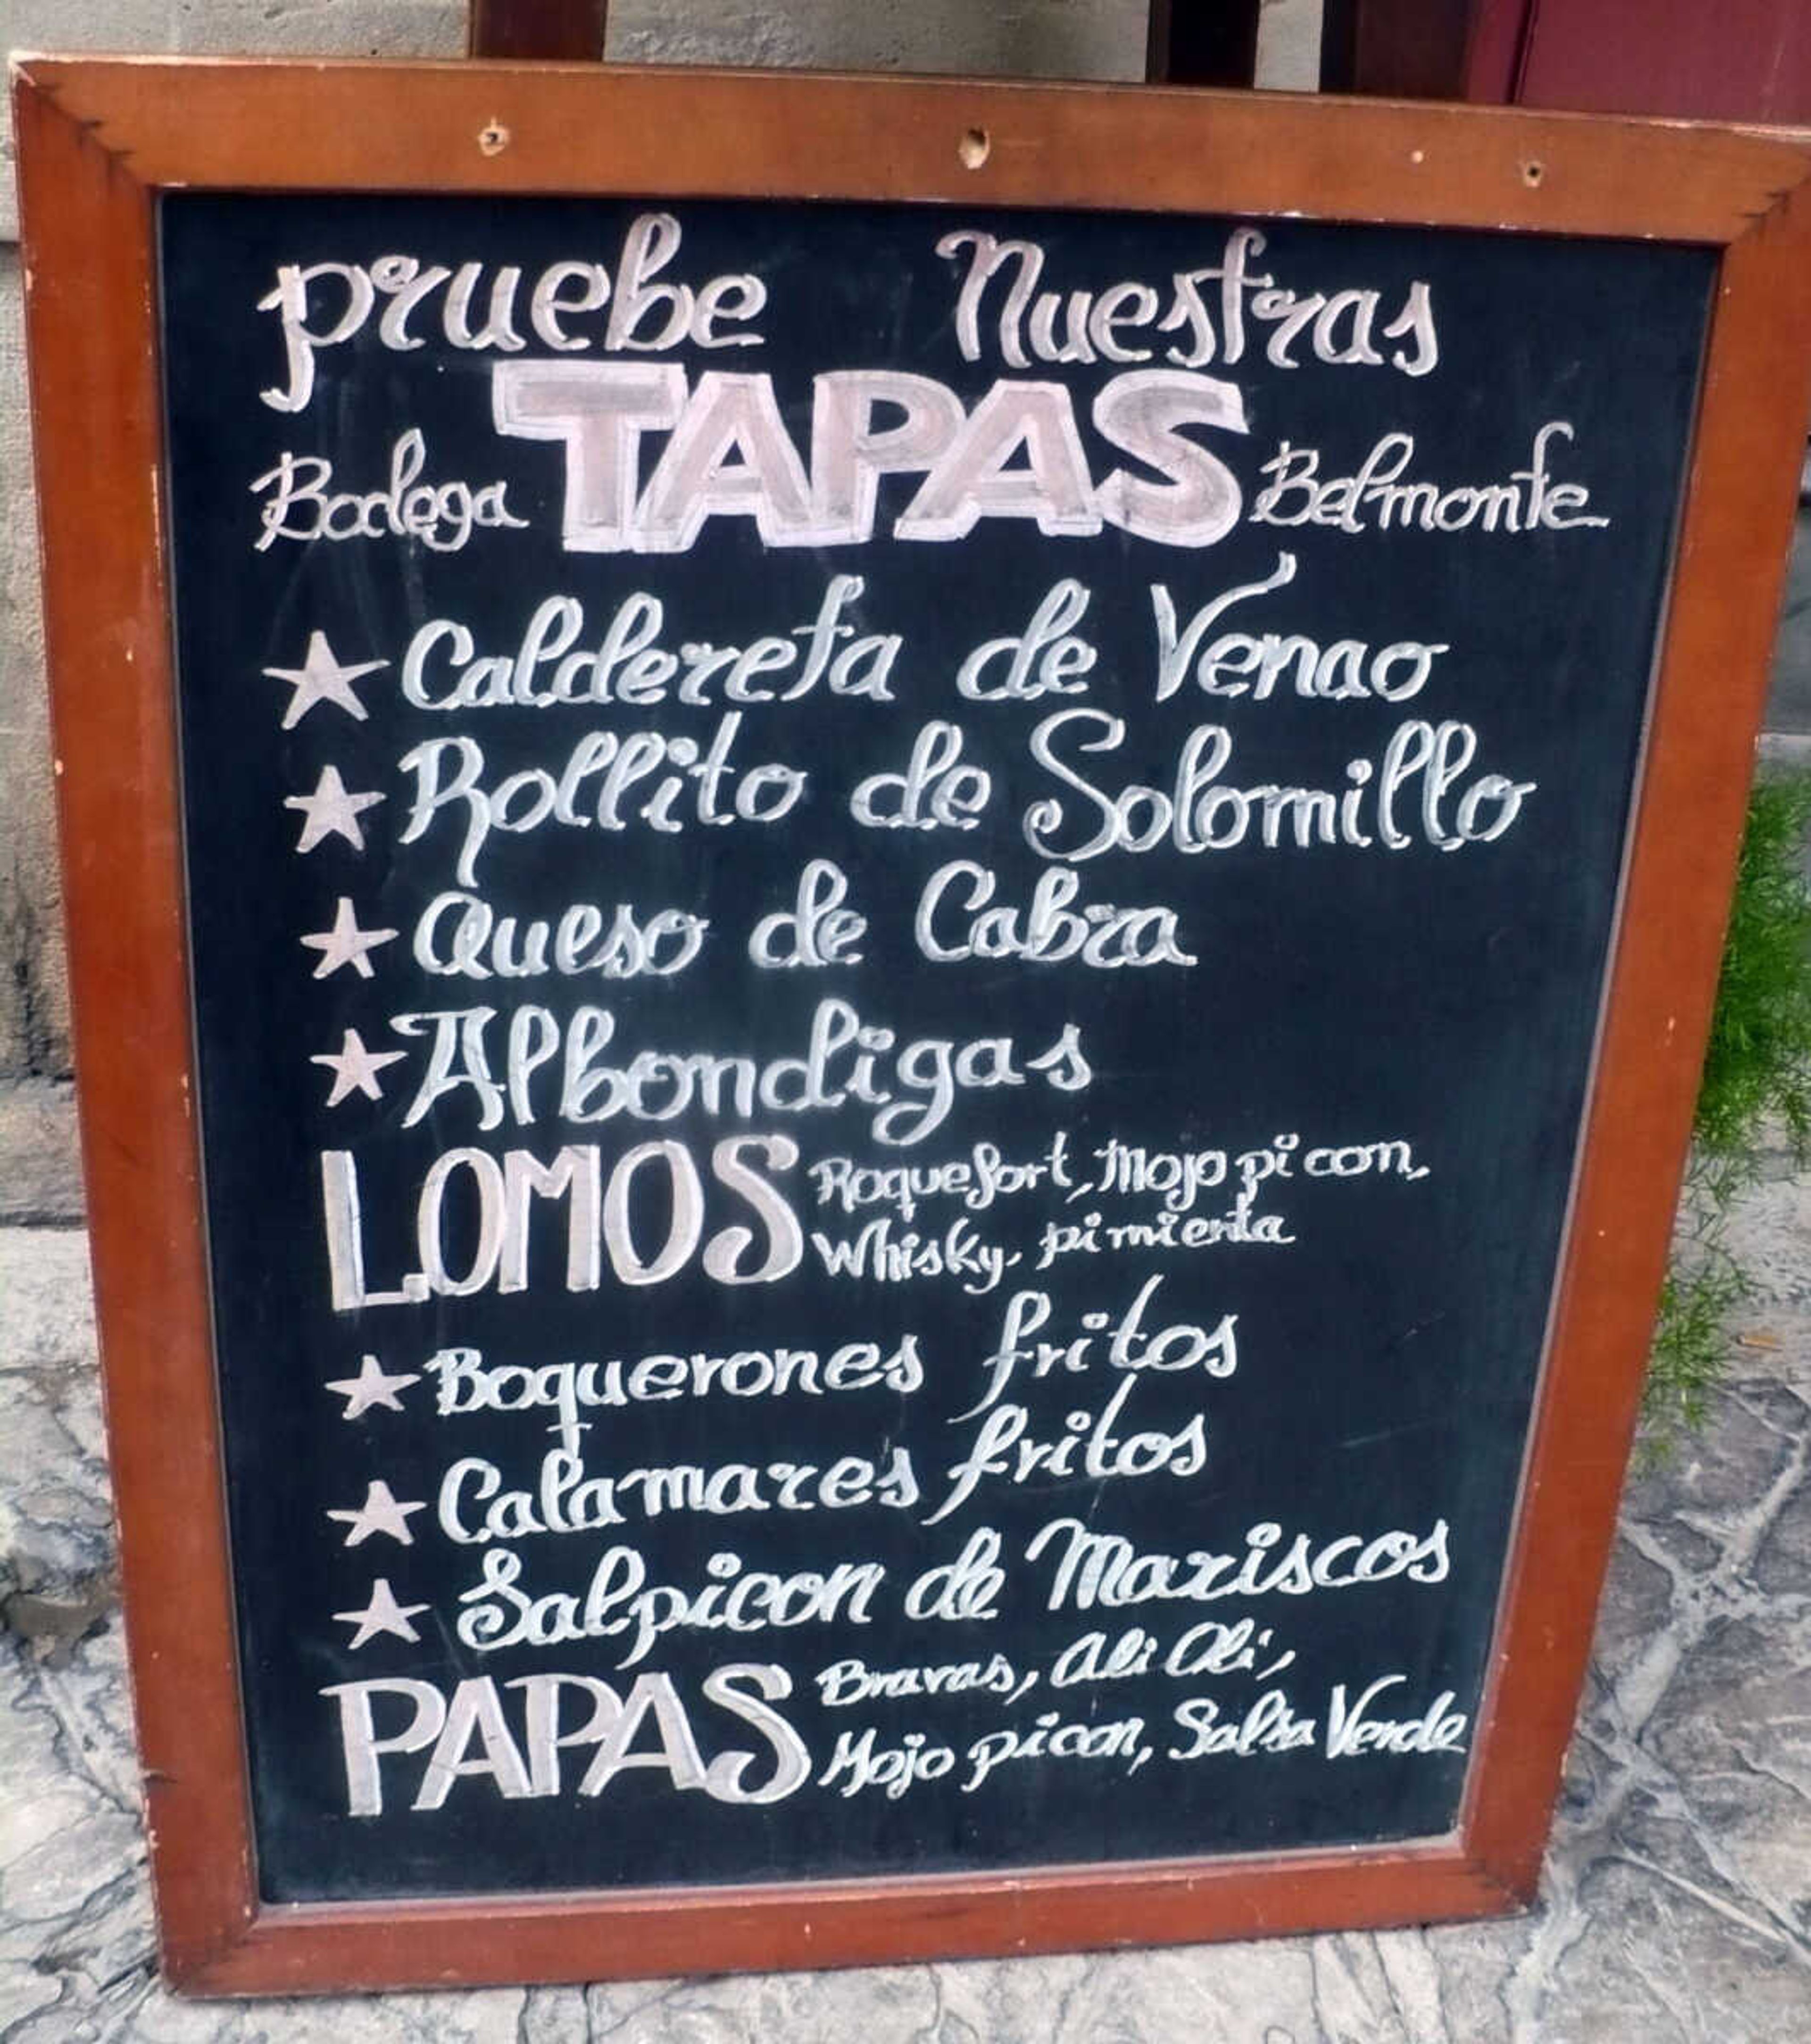 pruebe Nuestras
Bodega TAPAS Belmonte
Caldereta de Venao
Rollito de Solomillo
Queso de Cabra
Albondigas
LOMOS Roquefort, Mojo picon,
Whisky, pimienta
Boquerones fritos
Calamares fritos
Salpicon de Mariscos
PAPAS Bravas, Ali Oli,
Mojo picon, Salsa Verde